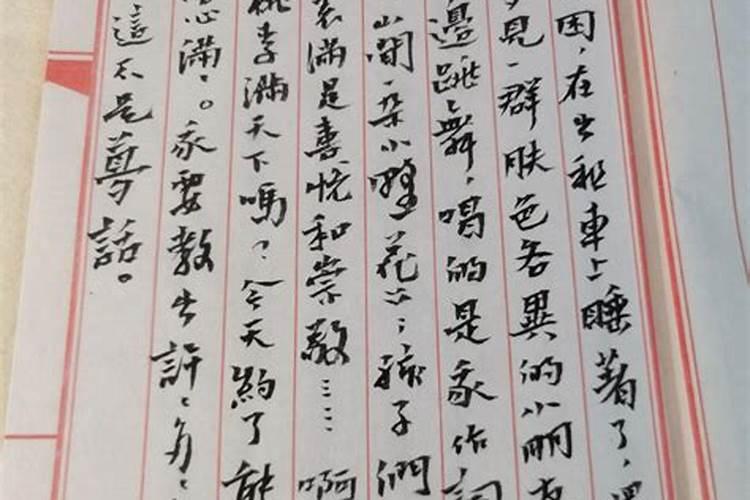 困,在出租車上睡着了,
見一群膚色各異的小朋友
邊跳舞,唱的是我作詞
山間一朵小野花》;孩子們
滿是喜悅和崇敬……啊
桃李滿天下嗎?今天約了
心滿滿。我要教出許許多多
這不是夢話。